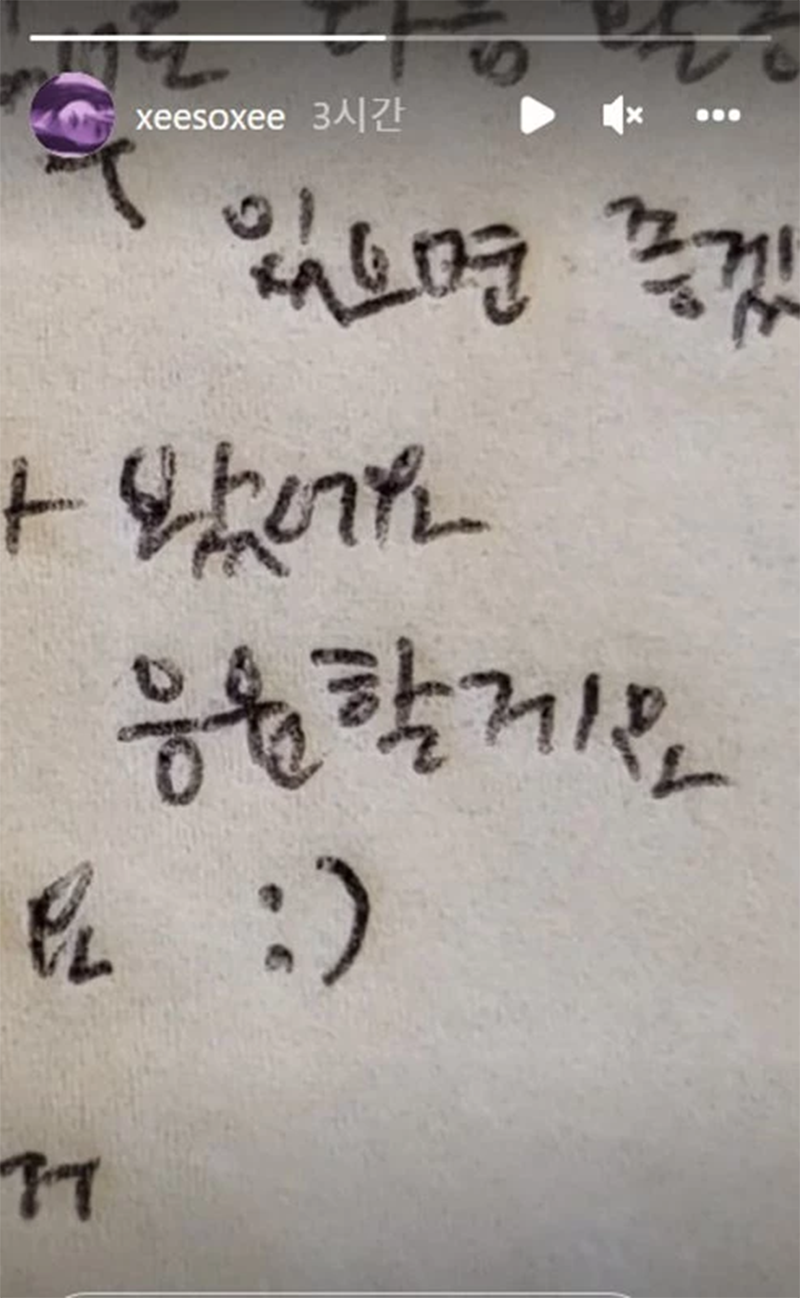 xeesoxee 3시간
있으면 좋겠
봤어요
응원할게요
요 :)